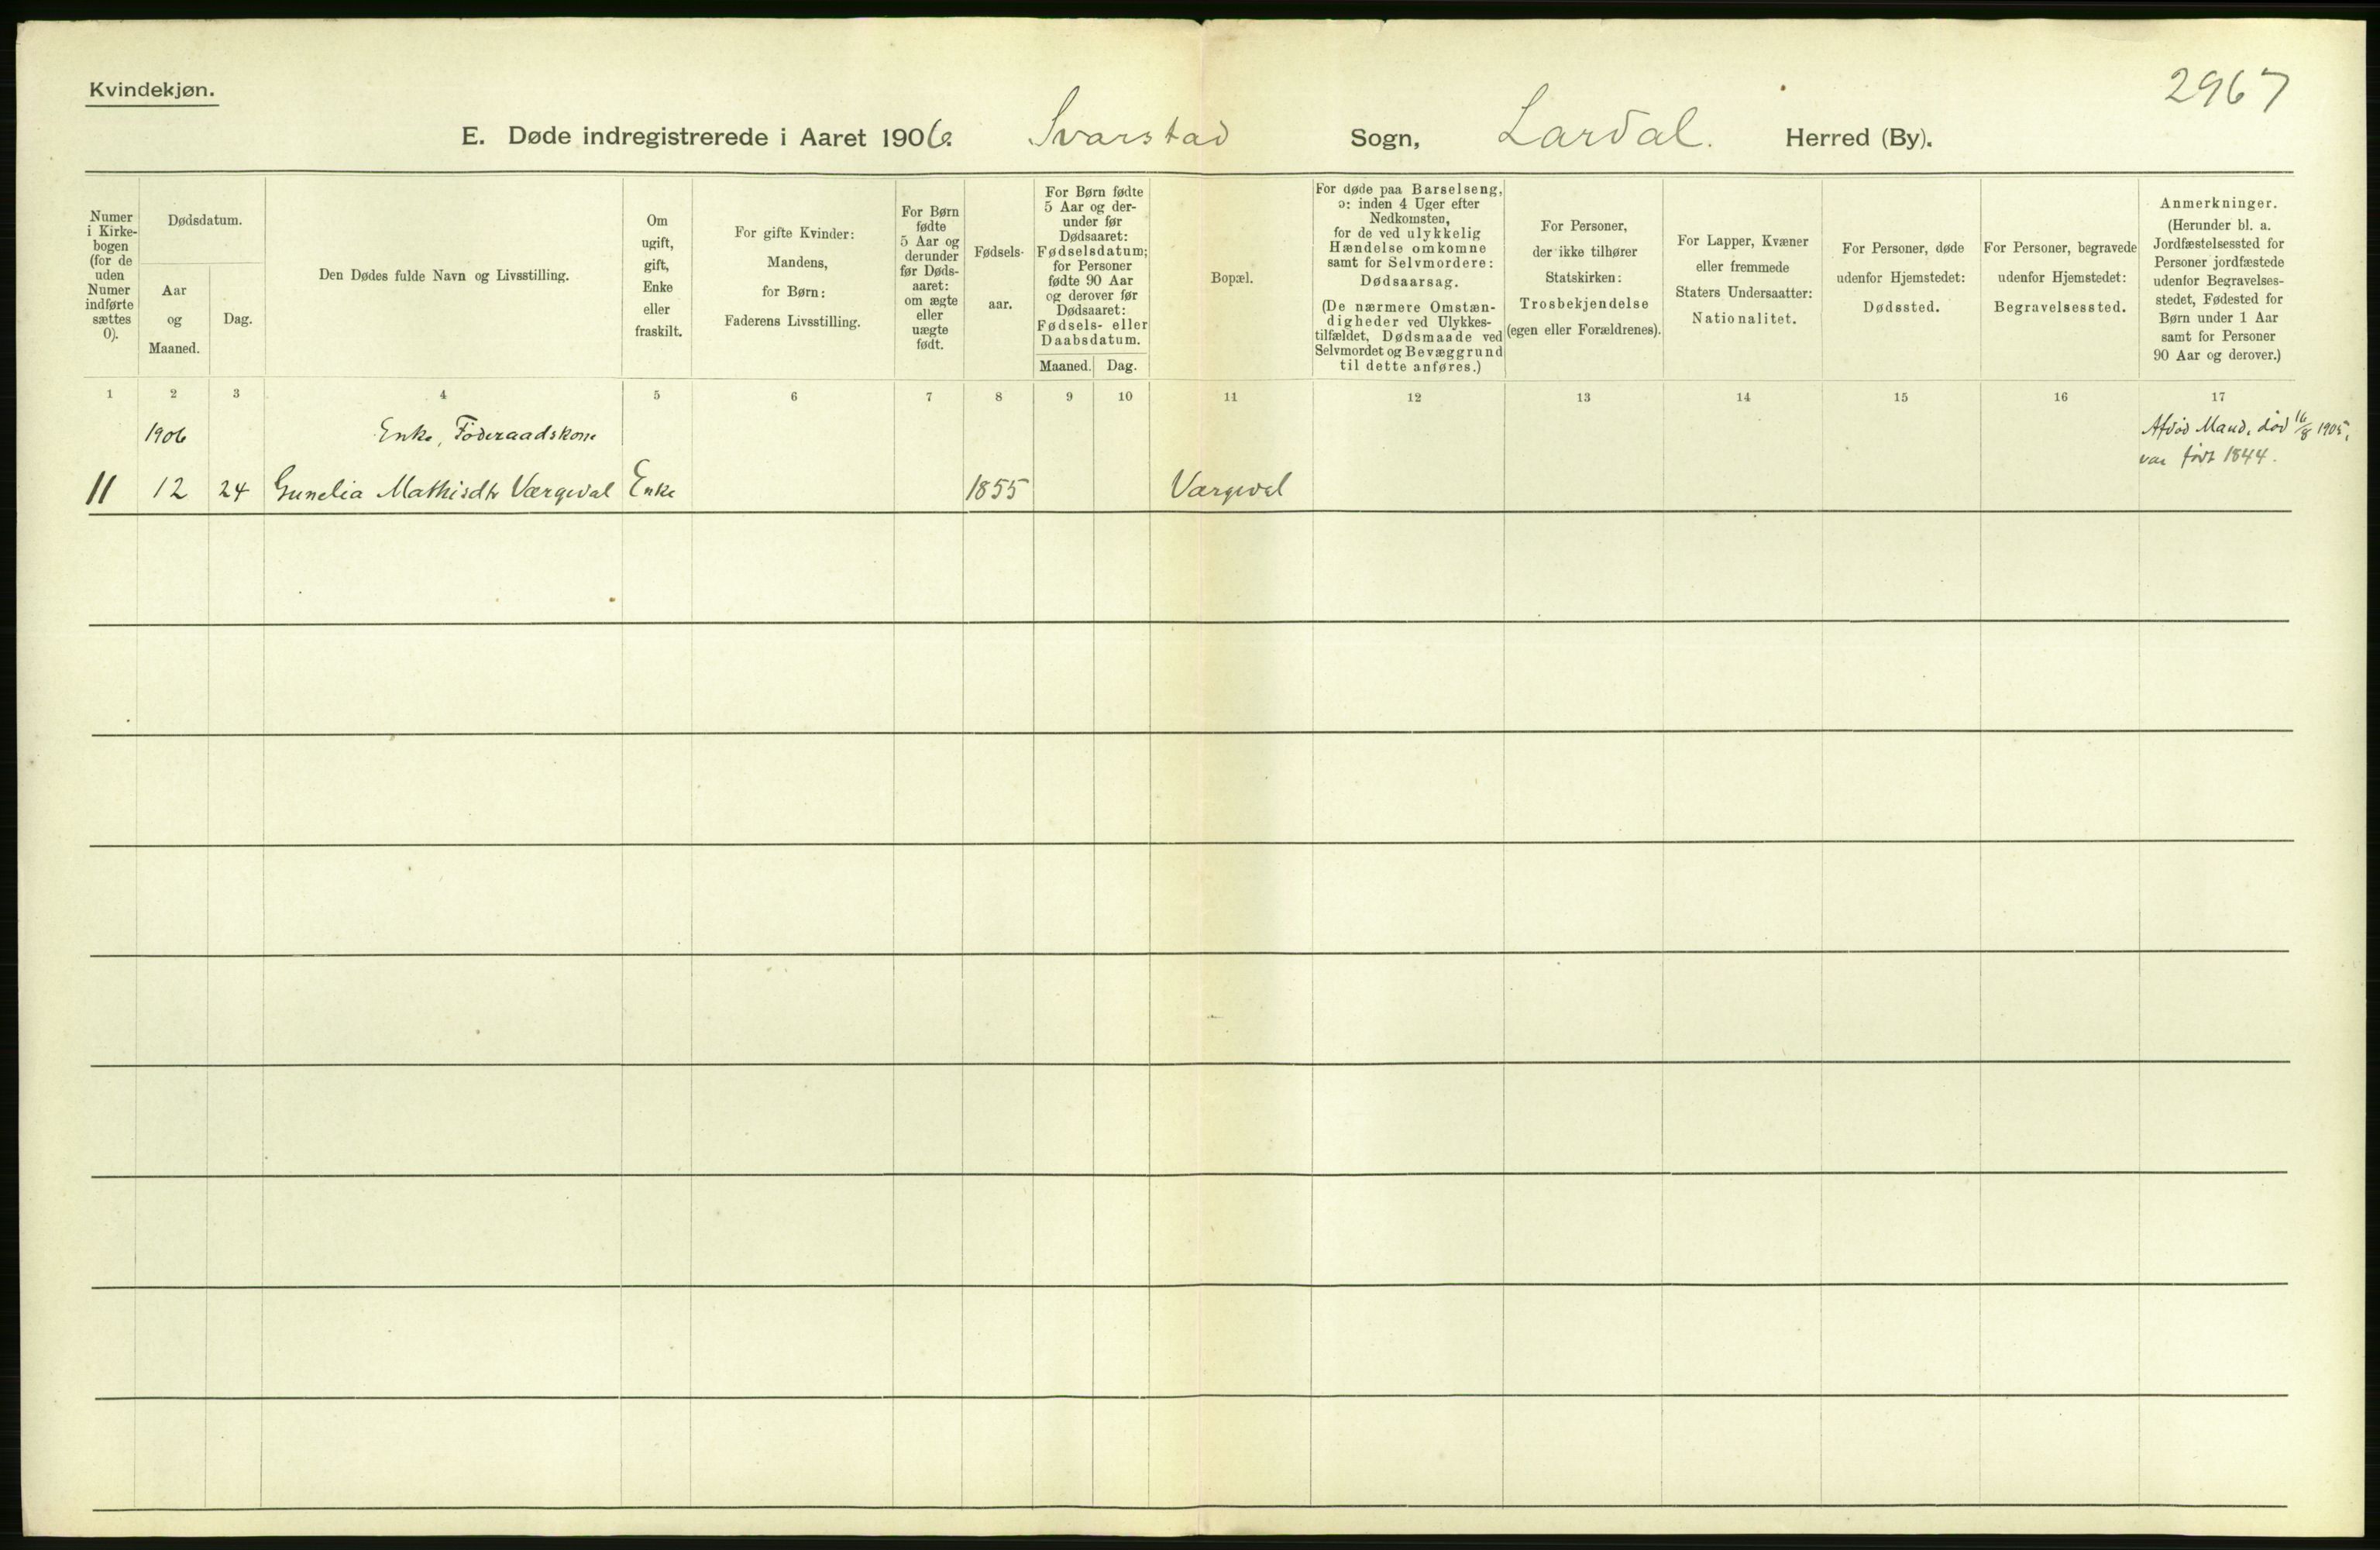 Kvindekjøn.
2967
E. Døde indregistrerede i Aaret 1906. Svarstad Sogn, Lardal. Herred (By).
Numer i Kirke- bogen (for de uden Numer indførte sættes 0).
Dødsdatum.
Aar og Maaned.
Dag.
Den Dødes fulde Navn og Livsstilling.
Om ugift, gift, Enke eller fraskilt.
For gifte Kvinder: Mandens, for Børn: Faderens Livsstilling.
For Børn fødte 5 Aar og derunder før Døds- aaret: om ægte eller uægte født.
Fødsels- aar.
For Børn fødte 5 Aar og der- under før Dødsaaret: Fødselsdatum; for Personer fødte 90 Aar og derover før Dødsaaret: Fødsels- eller Daabsdatum.
Maaned. Dag.
Bopæl.
For døde paa Barselseng, ɔ: inden 4 Uger efter Nedkomsten, for de ved ulykkelig Hændelse omkomne samt for Selvmordere: Dødsaarsag. (De nærmere Omstæn- digheder ved Ulykkes- tilfældet, Dødsmaade ved Selvmordet og Bevæggrund til dette anføres.)
For Personer, der ikke tilhører Statskirken: Trosbekjendelse (egen eller Forældrenes).
For Lapper, Kvæner eller fremmede Staters Undersaatter: Nationalitet.
For Personer, døde udenfor Hjemstedet: Dødssted.
For Personer, begravede udenfor Hjemstedet: Begravelsessted.
Anmerkninger. (Herunder bl. a. Jordfæstelsessted for Personer jordfæstede udenfor Begravelses- stedet, Fødested for Børn under 1 Aar samt for Personer 90 Aar og derover.)
1 2 3 4 5 6 7 8 9 10 11 12 13 14 15 16 17
1906 Enke, Föderaadskone Afdød Mand, død 16/8 1905,
var født 1844.
11 12 24 Gunelia Mathisdtr Værgedal Enke 1855 Værgedal